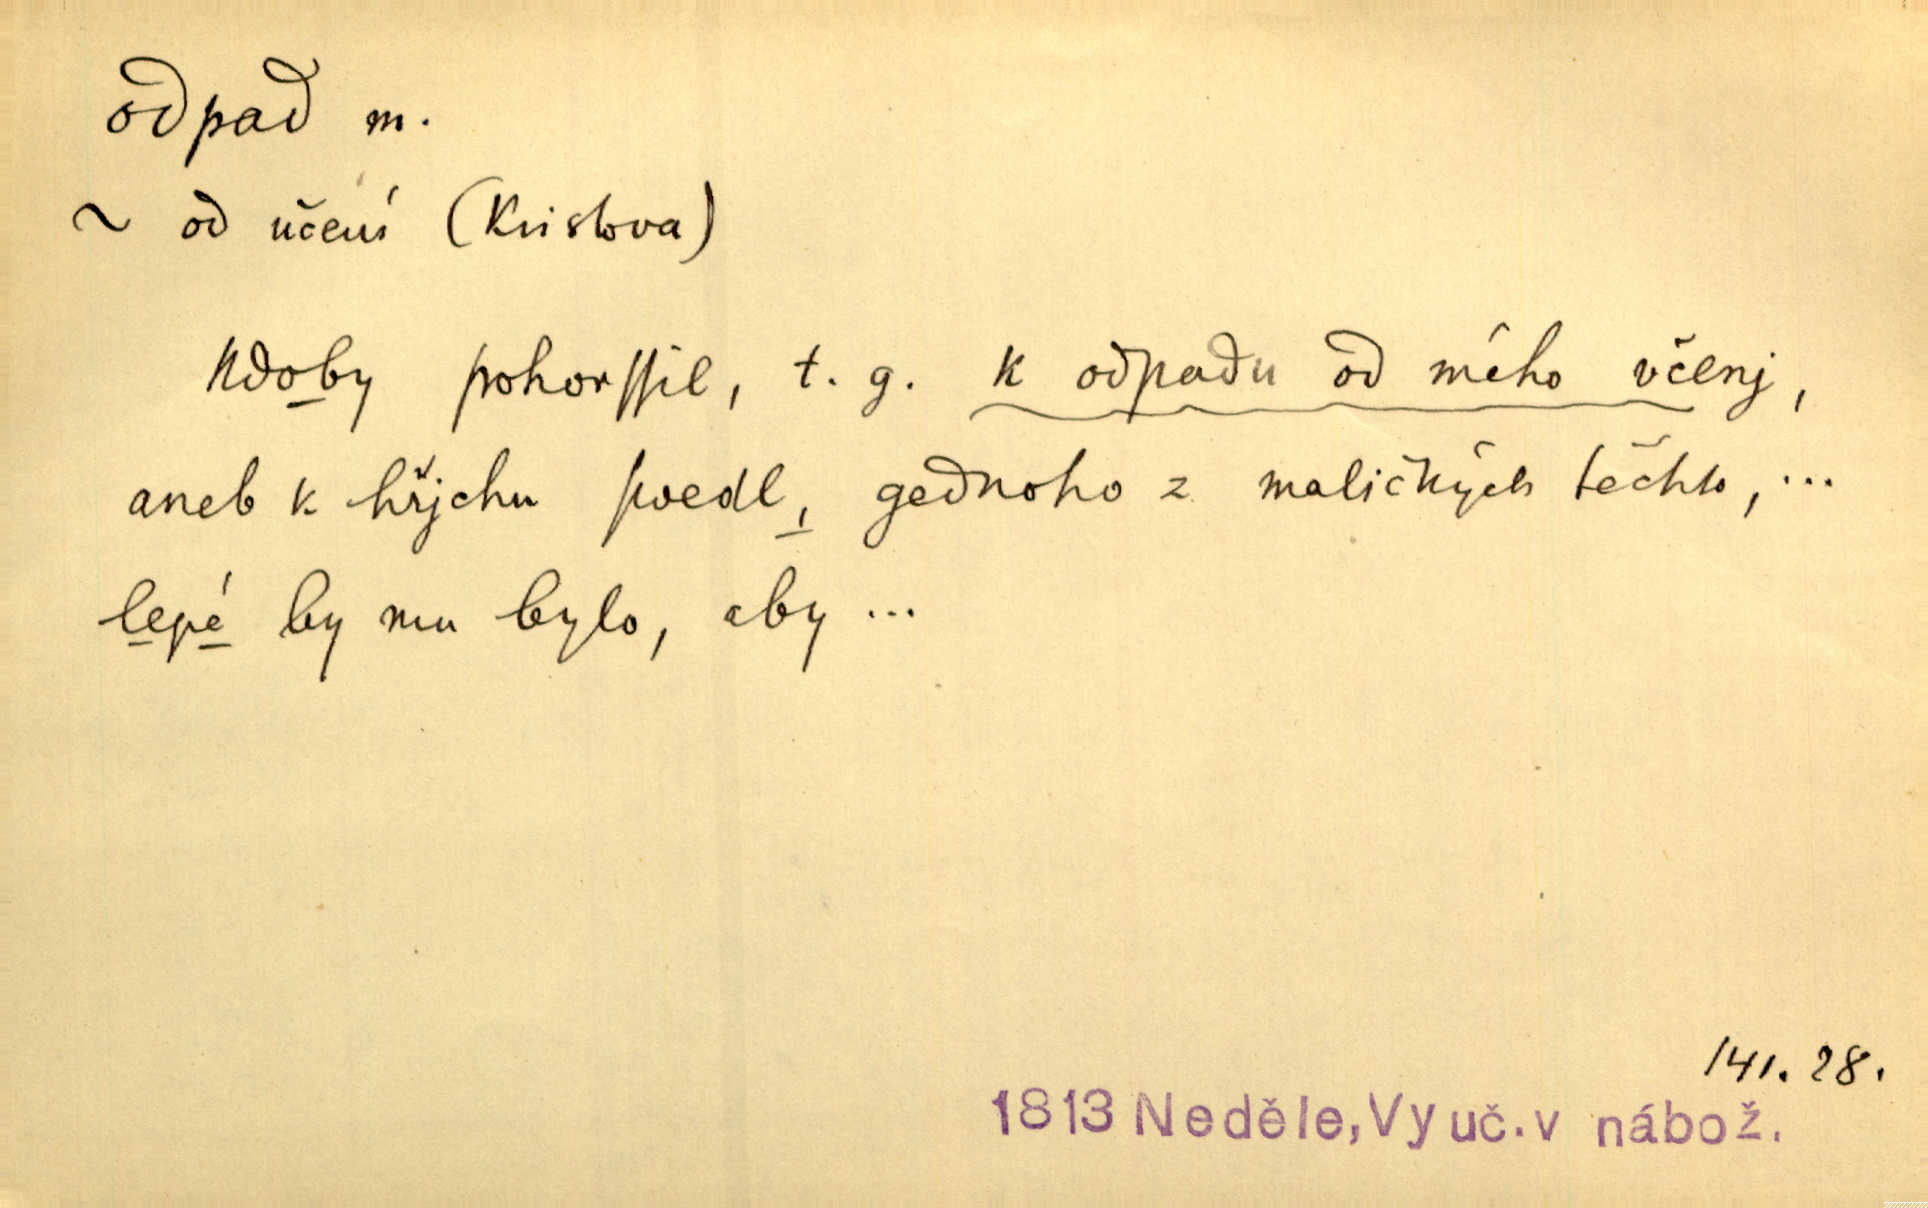 odpad m.
~ od učení (Kristova)
Kdoby pohorssil, t. g. k odpadu od mého včenj,
aneb k hřjchu svedl, gednoho z maličkých těchto, ...
lepé by mu bylo, aby ...
141. 28.
1813 Neděle, Vyuč. v nábož.